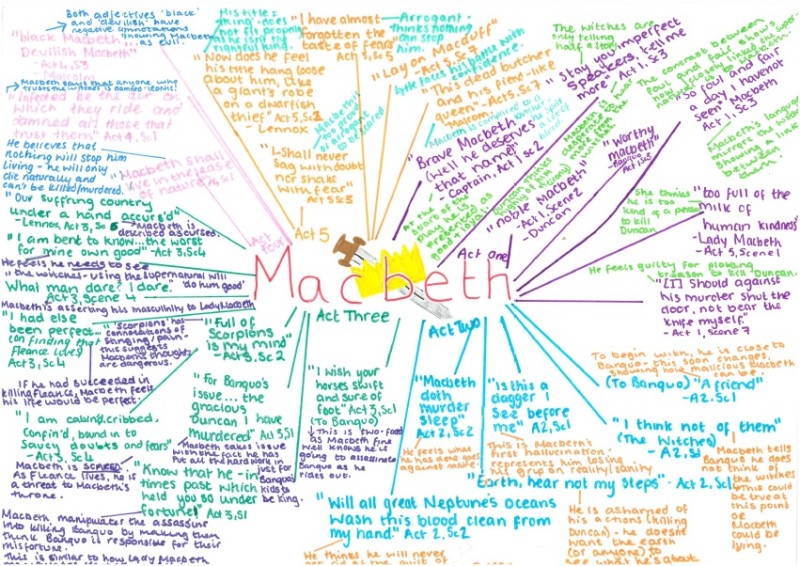 Both adjectives 'black'
and 'devilish' have
negative connotations
showing Macbeth
as evil.
"black Macbeth...
Devilish Macbeth"
- Act 4, S3
Malcolm
"Infected be the air on
which they ride and
damned all those that
trust them" Act 4, S1
He believes that
nothing will stop him
living - he will only
die naturally and
can't be killed/murdered.
"Macbeth shall
live in the lease
of nature"
Act Four
His title -
'king' does
not fit properly
"Now does he feel
his title hang loose
about him, like
a giant's robe
on a dwarfish
thief" Act 5, Sc2
- Lennox
"I have almost
forgotten the
taste of fears"
Act 5, Sc5
Arrogant -
thinks nothing
can stop
him.
"Lay on Macduff"
- Act 5, Sc7
He faces his battle with
confidence.
"This dead butcher
and his fiend-like
queen" - Act 5, Sc7
"I shall never
sag with doubt
nor shake
with fear"
Act 5 S3
Act 5
"Brave Macbeth
(Well he deserves
that name)"
- Captain, Act 1 Sc2
"noble Macbeth"
- Act 1, Scene 2
- Duncan
The witches are
only telling
half a story
"Stay you imperfect
speakers, tell me
more" Act 1, Sc3
"So foul and fair
a day I have not
seen" Macbeth
Act 1, Sc3
Macbeth's language
mirrors the witches
showing a link
between
them.
"Worthy
Macbeth"
She thinks
he is too
kind of a person
to kill
Duncan
"too full of the
milk of
human kindness"
- Lady Macbeth
- Act 5, Scene 1
He feels guilty for plotting
treason to kill Duncan.
"[I] Should against
his murder shut the
door, not bear the
knife myself"
- Act 1, Scene 7
Act One
Macbeth
"Our suffrung country
under a hand accurs'd"
- Lennox, Act 3, Sc 6
Macbeth is
described as cursed.
"I am bent to know... the worst
for mine own good" - Act 3, Sc4
He feels he needs to see
the witches - using the supernatural will
"do him good"
What man dare? I dare."
Act 3, Scene 4
Macbeth's asserting his masculinity to Lady Macbeth
"I had else
been perfect"
(on finding that
Fleance lives)
Act 3, Sc4
'Scorpions' has
connotations of
stinging/pain -
this suggests
Macbeth's thoughts
are dangerous.
"Full of
Scorpions
is my mind"
- Act 3, Sc 2
Act Three
If he had succeeded in
killing Fleance, Macbeth feels
his life would be perfect.
"I am cabin'd, cribbed,
Confin'd, bound in to
Saucy doubts and fears"
- Act 3, Sc4
Macbeth is SCARED.
As Fleance lives, he is
a threat to Macbeth's
throne.
"For Banquo's
issue... the
gracious
Duncan I have
murdered" Act 3, S1
Macbeth takes issue
with the fact he has
put all the hard work in
just for
Banquo's
kids to
be king.
"Know that he - in
times past which
held you so under
fortune" Act 3, S1
Macbeth manipulates the assassins
into killing Banquo by making them
think Banquo is responsible for their
misfortune.
This is similar to how Lady Macbeth
"I wish your
horses swift
and sure of
foot" Act 3, Sc1
(To Banquo)
This is two-faced
as Macbeth fine
well knows he is
going to assassinate
Banquo as he
rides out.
Act Two
"Macbeth
doth
murder
sleep"
Act 2, Sc2
He feels what
he has done goes
against nature.
"Is this a
dagger I
see before
me" A2, Sc1
This is Macbeth's
first hallucination -
represents him losing
his grip on reality/sanity
To begin with, he is close to
Banquo - this soon changes,
showing how malicious Macbeth
can be.
(To Banquo) "A friend"
- A2, Sc1
"I think not of them"
(The Witches)
- A2, S1
Macbeth tells
Banquo he does
not think of
the witches
- this could
be true at
this point
or
Macbeth
could be
lying.
"Earth, hear not my steps" - Act 2, Sc1
He is ashamed of
his actions (killing
Duncan) - he doesn't
want the earth
(or anyone) to
see what he's about
"Will all great Neptune's oceans
wash this blood clean from
my hand" Act 2, Sc2
He thinks he will never